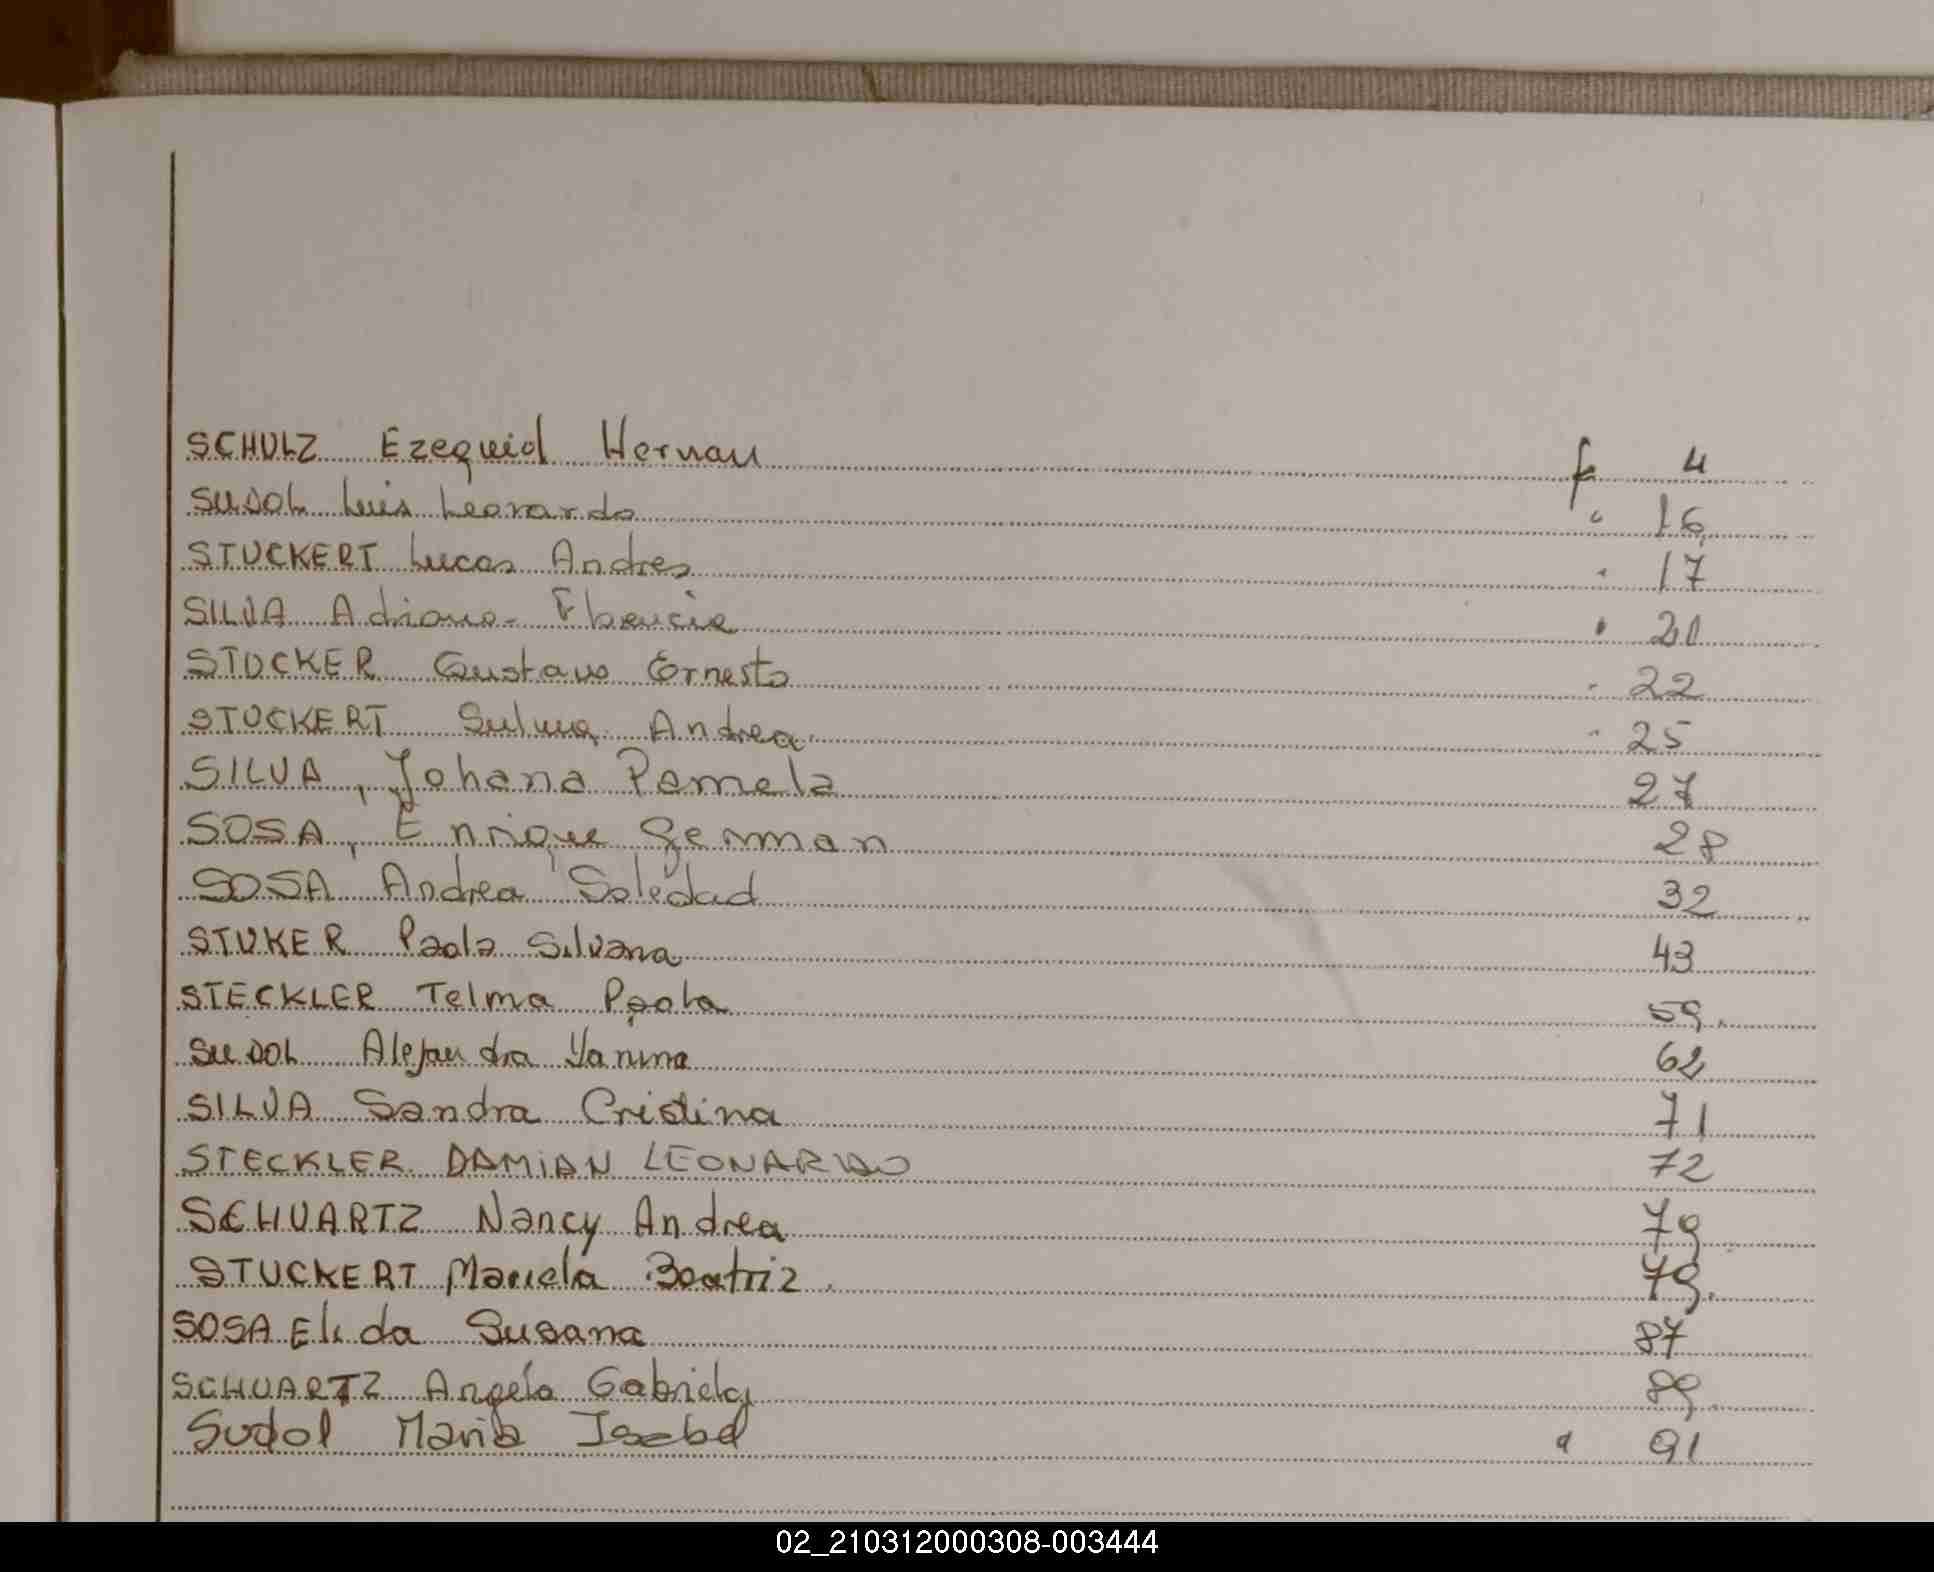 SCHULZ Ezequiel Hernan f 4
SUDOL Luis Leonardo " 16
STUCKERT Lucas Andres " 17
SILVA Adriana Florencia " 20
STOCKER Gustavo Ernesto " 22
STUCKERT Andrea " 25
SILVA, Johana Pamela 27
SOSA, Enrique German 28
SOSA Andrea Soledad 32
STUKER Paola Silvana 43
STECKLER Telma Paola 59.
SUDOL Alejandra Yanina 62
SILVA Sandra Cristina 71
STECKLER DAMIAN LEONARDO 72
SCHUARTZ Nancy Andrea 79
STUCKERT Mariela Beatriz. 79.
SOSA Elida Susana 87
SCHUARTZ Angela Gabriela 89
Sudol Maria Isabel " 91
02_210312000308-003444